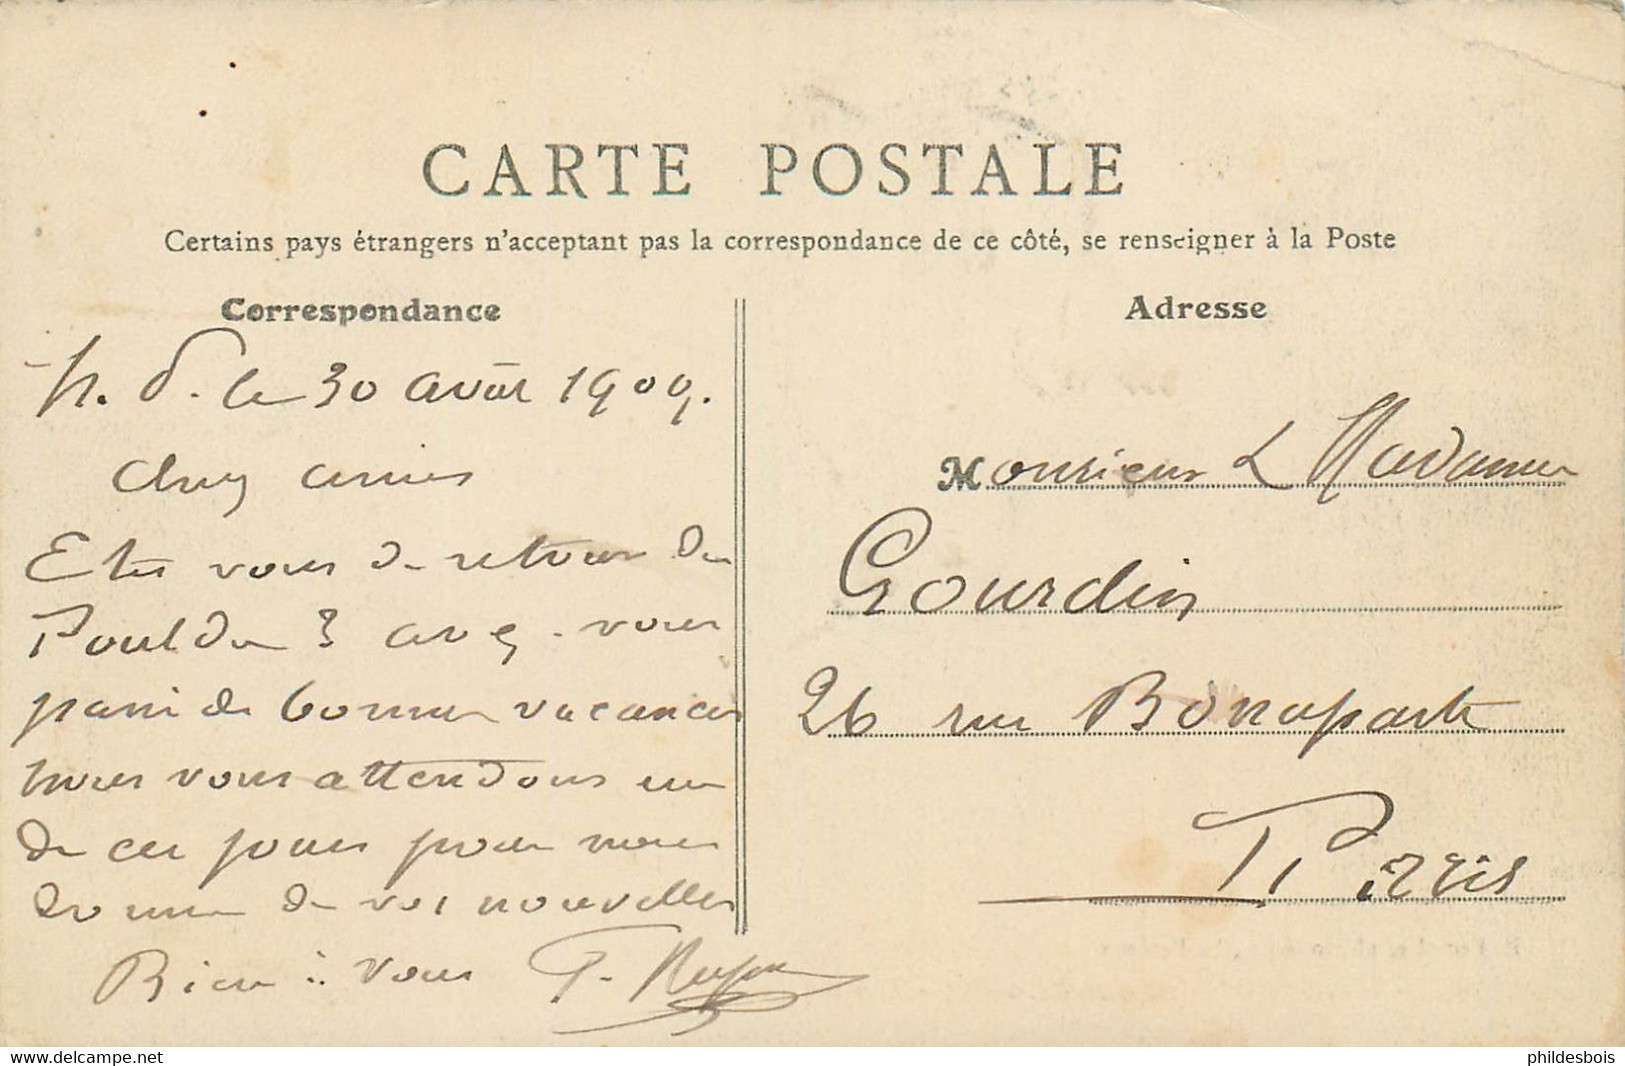 CARTE POSTALE
Certains pays étrangers n'acceptant pas la correspondance de ce côté, se renseigner à la Poste
Correspondance
Adresse
le 30 août 1909.
Chers amis
Etes vous de retour du
Pouldu ? avez-vous
passé de bonnes vacances
nous vous attendons un
de ces jours pour nous
donner de vos nouvelles
Bien à vous
Monsieur & Madame
Gourdin
26 rue Bonaparte
Paris
www.delcampe.net
phildesbois